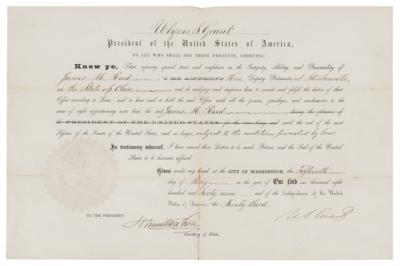 Ulysses S. Grant
President of the United States of America,
TO ALL WHO SHALL SEE THESE PRESENTS, GREETING:
Know ye, That reposing special trust and confidence in the Integrity, Ability, and Punctuality of
James M. Reed I DO APPOINT him, Deputy Postmaster at Steubenville,
in the State of Ohio, and do authorize and empower him to execute and fulfil the duties of that
Office according to Law; and to have and to hold the said Office, with all the powers, privileges, and emoluments to the
same of right appertaining unto him, the said James M. Reed
PRESIDENT OF THE UNITED STATES for the time being until the end of the next
Session of the Senate of the United States, and no longer, subject to the conditions prescribed by law.
In testimony whereof, I have caused these Letters to be made Patent, and the Seal of the United
States to be hereunto affixed.
Given under my hand, at the CITY OF WASHINGTON, the Fifteenth
day of May in the year of Our Lord one thousand eight hundred
and sixty-nine and of the Independence of the United
States of America, the Ninety-third.
BY THE PRESIDENT: Hamilton Fish U. S. Grant
Secretary of State.